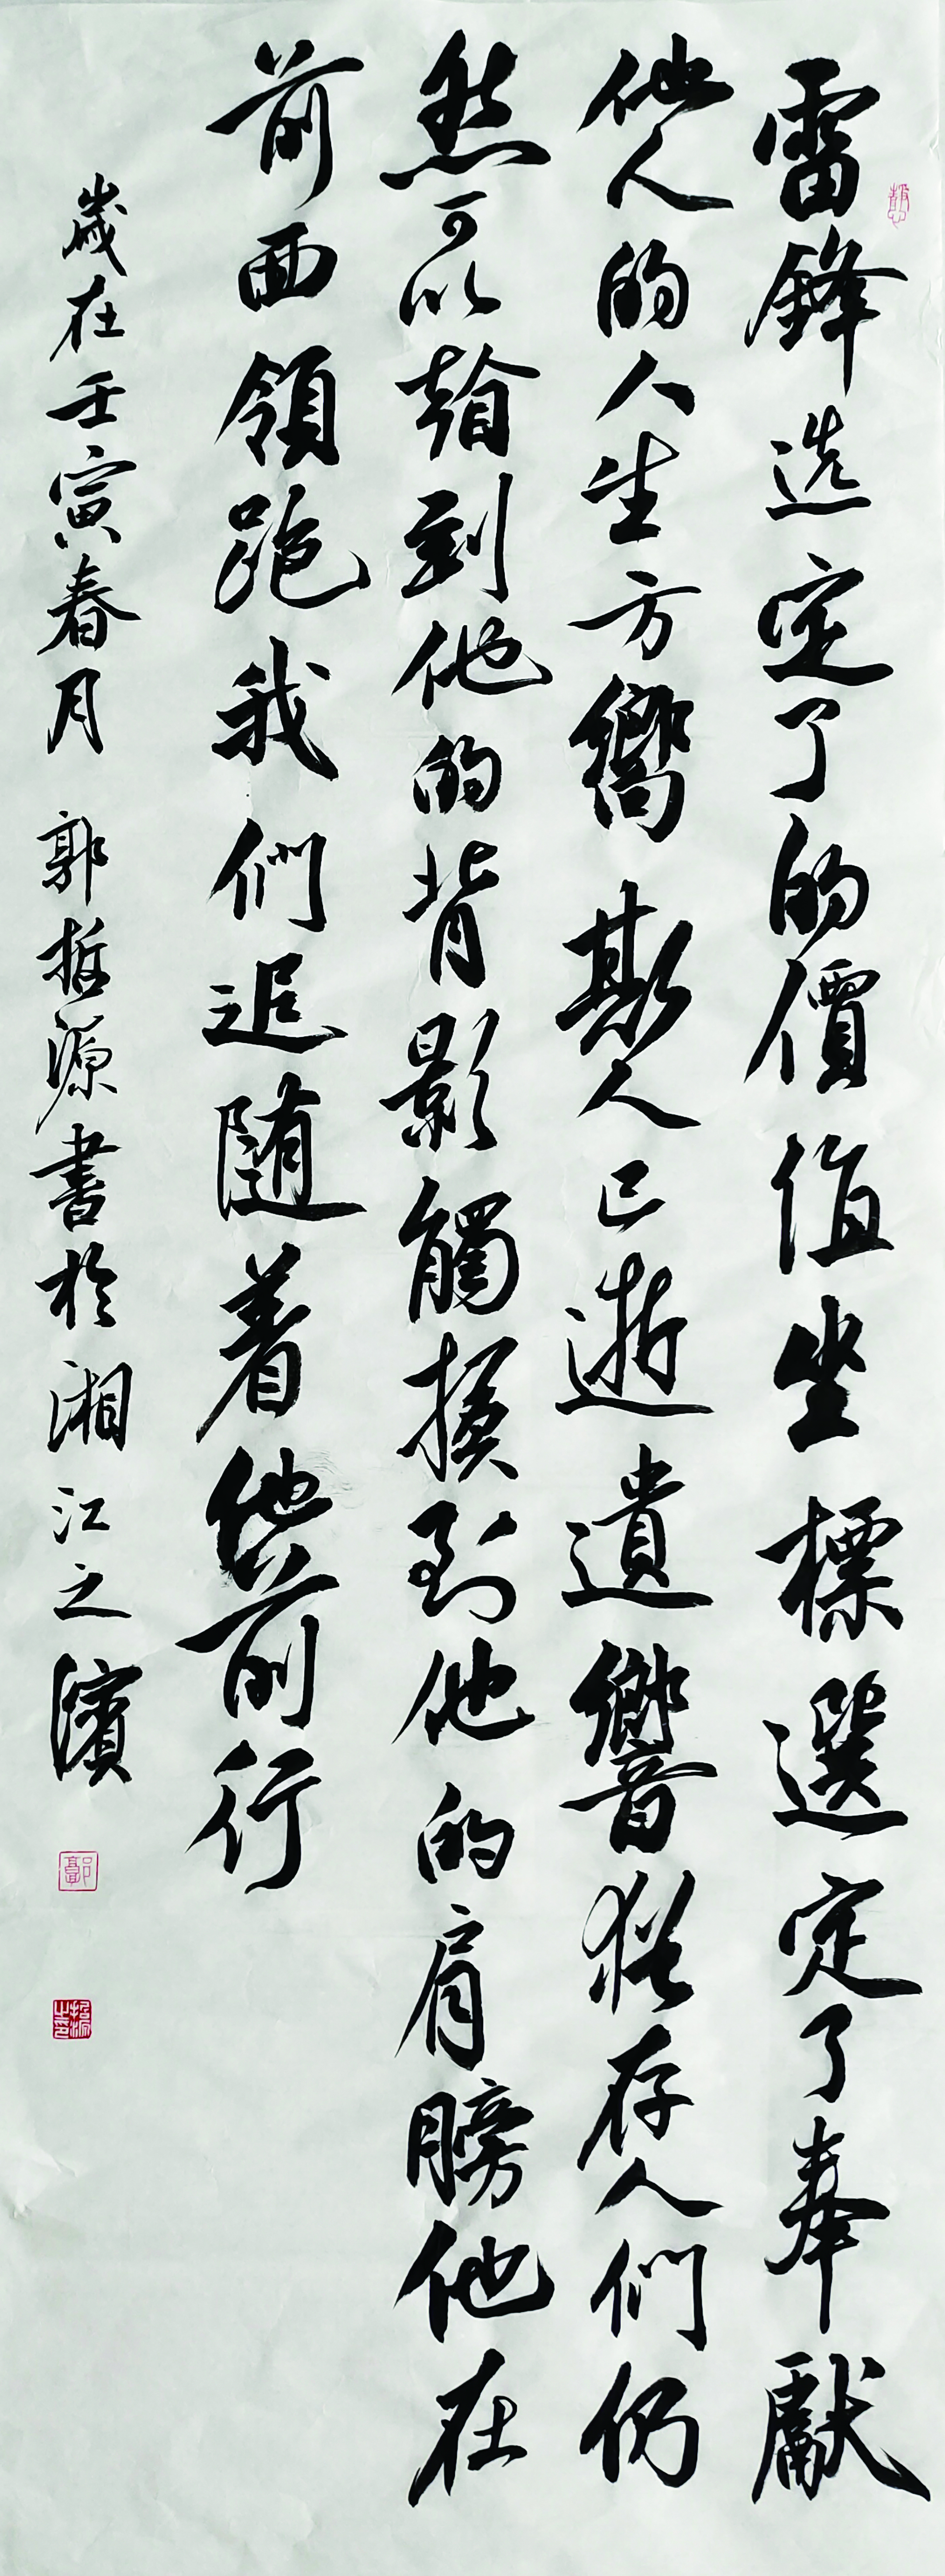 雷鋒选定了的價值坐標選定了奉獻
他人的人生方嚮斯人已逝遺響猶存人们仍
然可以看到他的背影觸摸到他的肩膀他在
前面領跑我們追随着他前行
歲在壬寅春月 郭哲源書於湘江之濱
郭